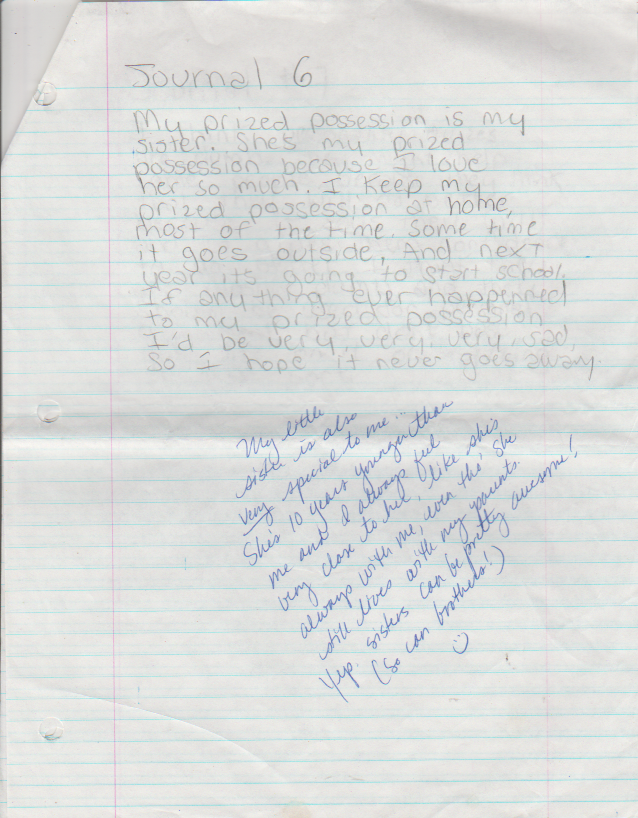 Journal 6
My prized possession is my
sister. She's my prized
possession because I love
her so much. I keep my
prized possession at home,
most of the time. Some time
it goes outside, And next
year its going to start school.
If anything ever happenned
to my prized possession
I'd be very, very, very, sad,
So I hope it never goes away.
My little
sister is also
very special to me...
She's 10 years younger than
me and I always feel
very close to her, like she's
always with me, even tho, she
still lives with my parents.
Yup. sisters can be pretty awesome!
(So can brothers!)